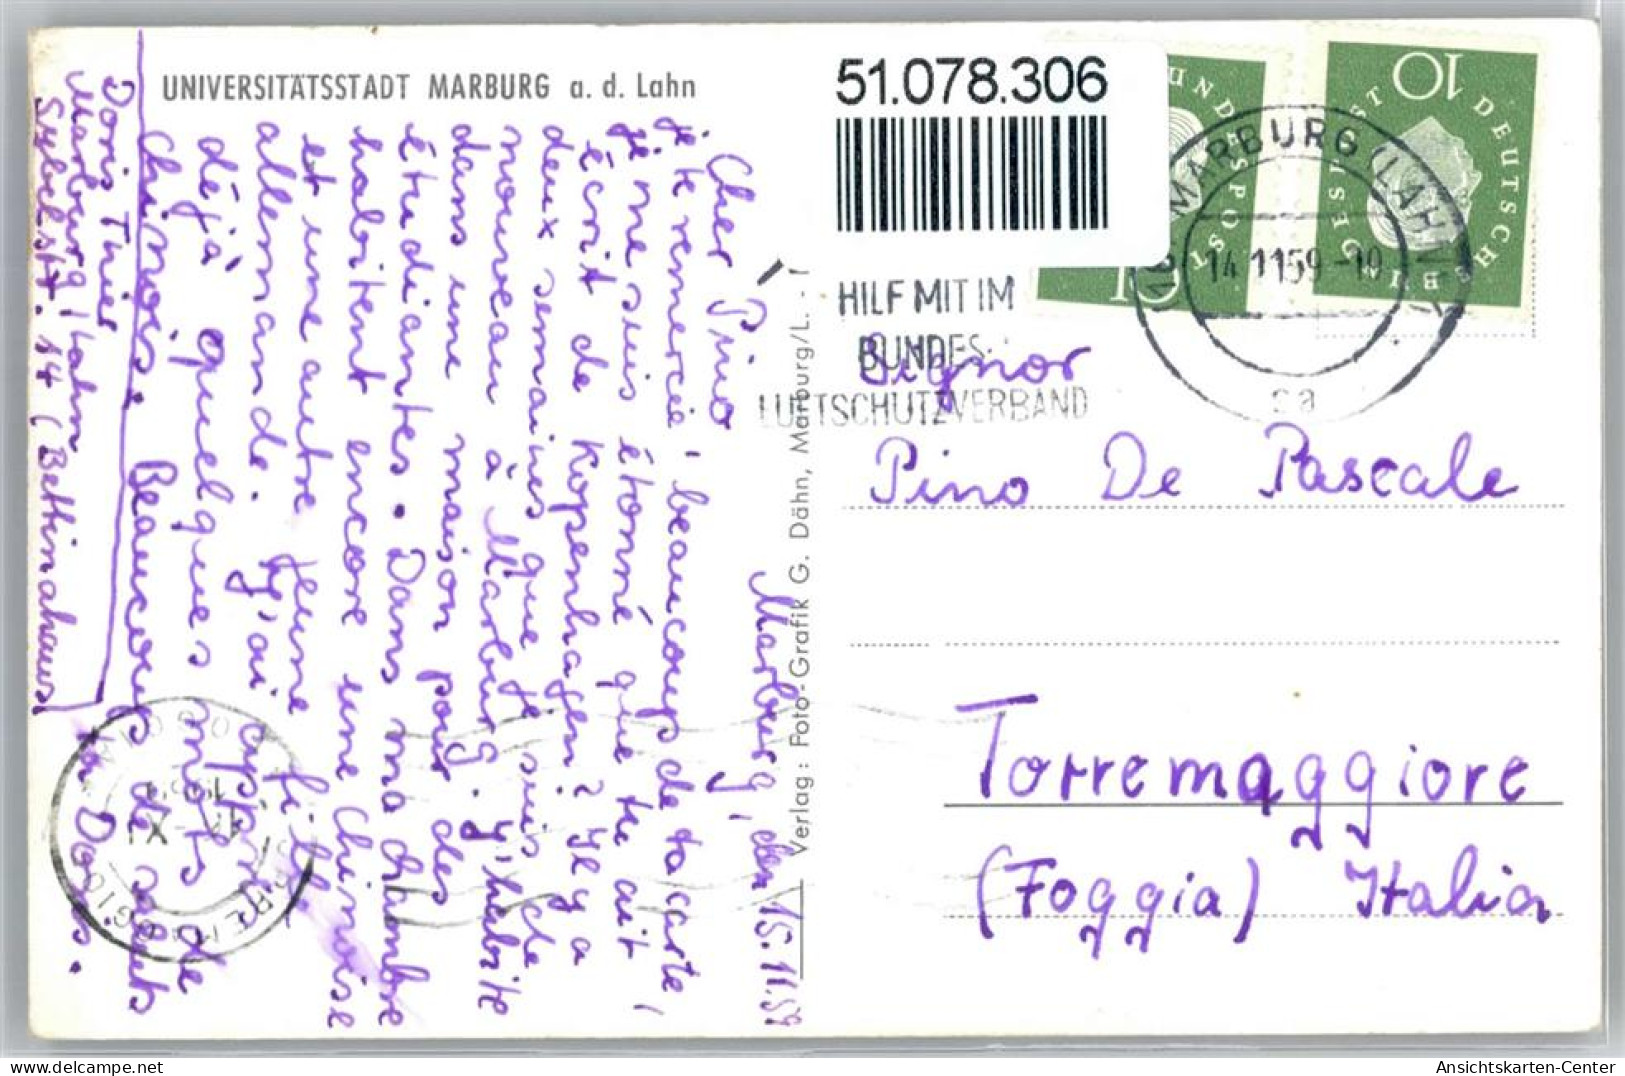 UNIVERSITÄTSSTADT MARBURG a. d. Lahn
Marburg, den 15.11.59
Cher Pino
je te remercie beaucoup de ta carte,
je me suis étonné que tu ait
écrit de Kopenhagen? Il y a
deux semaines que je suis de
nouveau à Marburg. J'habite
dans une maison pour des
étudiantes. Dans ma chambre
habitent encore une Chinoise
et une autre jeune fille
allemande. J'ai appris
déjá quelques mots de
chinois. Beaucoup de saluts
ta Doris.
Doris Thier
Marburg/Lahn
Sybelstr. 14 (Bettinahaus)
Verlag: Foto-Grafik G. Dähn, Marburg/L.
51.078.306
DEUTSCHE BUNDESPOST
10
DEUTSCHE
10
MARBURG (LAHN)
14.11 59-10
ca
HILF MIT IM
BUNDES-
LUFTSCHUTZVERBAND
Signor
Pino De Pascale
Torremaggiore
(Foggia) Italia
Ansichtskarten-Center